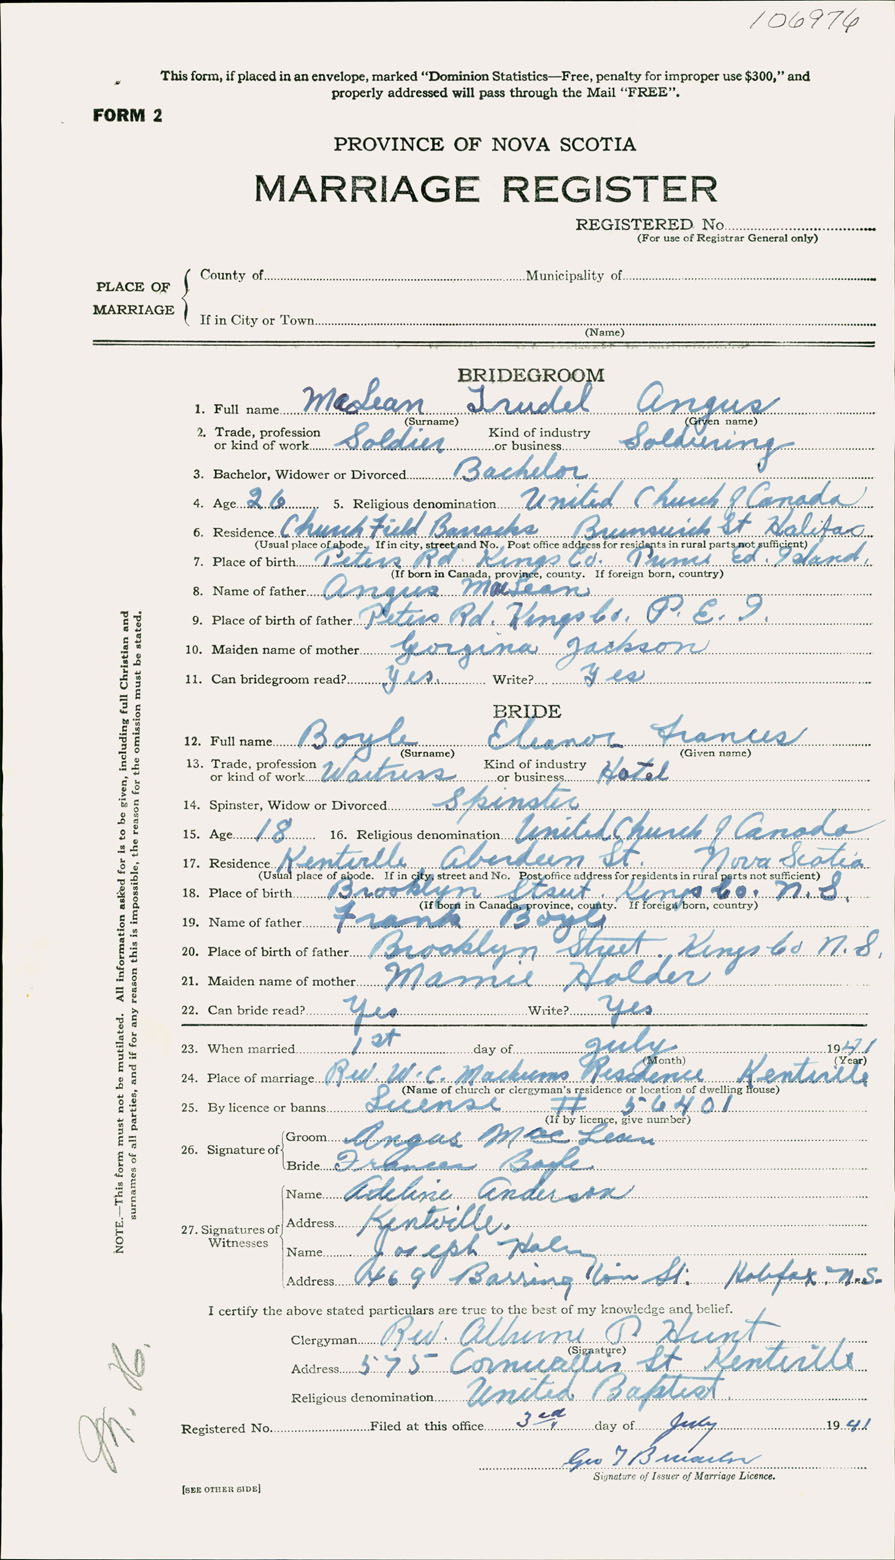 106976
This form, if placed in an envelope, marked “Dominion Statistics—Free, penalty for improper use $300,” and
properly addressed will pass through the Mail “FREE”.
FORM 2
PROVINCE OF NOVA SCOTIA
MARRIAGE REGISTER
REGISTERED No
(For use of Registrar General only)
PLACE OF MARRIAGE
County of Municipality of
If in City or Town
(Name)
BRIDEGROOM
1. Full name MacLean Trudel Angus
(Surname) (Given name)
2. Trade, profession or kind of work Soldier Kind of industry or business Soldiering
3. Bachelor, Widower or Divorced Bachelor
4. Age 26 5. Religious denomination United Church of Canada
6. Residence Church Field Barracks Brunswick St Halifax
(Usual place of abode. If in city, street and No. Post office address for residents in rural parts not sufficient)
7. Place of birth Peters Rd. Kings Co. Prince Ed. Island.
(If born in Canada, province, county. If foreign born, country)
8. Name of father Angus MacLean
9. Place of birth of father Peters Rd. Kings Co. P. E. I.
10. Maiden name of mother Gorgina Jackson
11. Can bridegroom read? Yes. Write? Yes
BRIDE
12. Full name Boyle Eleanor Frances
(Surname) (Given name)
13. Trade, profession or kind of work Waitress Kind of industry or business Hotel
14. Spinster, Widow or Divorced Spinster
15. Age 18 16. Religious denomination United Church of Canada
17. Residence Kentville Aberdeen St. Nova Scotia
(Usual place of abode. If in city, street and No. Post office address for residents in rural parts not sufficient)
18. Place of birth Brooklyn Street, Kings Co. N.S.
(If born in Canada, province, county. If foreign born, country)
19. Name of father Frank Boyle
20. Place of birth of father Brooklyn Street, Kings Co N.S.
21. Maiden name of mother Mamie Holder
22. Can bride read? Yes Write? Yes
23. When married 1st day of July 1941
(Month) (Year)
24. Place of marriage Rev. W. C. Residence Kentville
(Name of church or clergyman's residence or location of dwelling house)
25. By licence or banns License # 56401
(If by licence, give number)
26. Signature of Groom Angus MacLean
Bride Frances Boyle
27. Signatures of Witnesses
Name Adeline Anderson
Address Kentville.
Name Joseph
Address 469 Barrington St. Halifax, N.S.
I certify the above stated particulars are true to the best of my knowledge and belief.
Clergyman Rev. P. Hunt
(Signature)
Address 575 Cornwallis St Kentville
Religious denomination United Baptist.
Registered No. Filed at this office 3rd day of July 1941
Geo T
Signature of Issuer of Marriage Licence.
[SEE OTHER SIDE]
NOTE.—This form must not be mutilated. All information asked for is to be given, including full Christian and
surnames of all parties, and if for any reason this is impossible, the reason for the omission must be stated.
M. H.